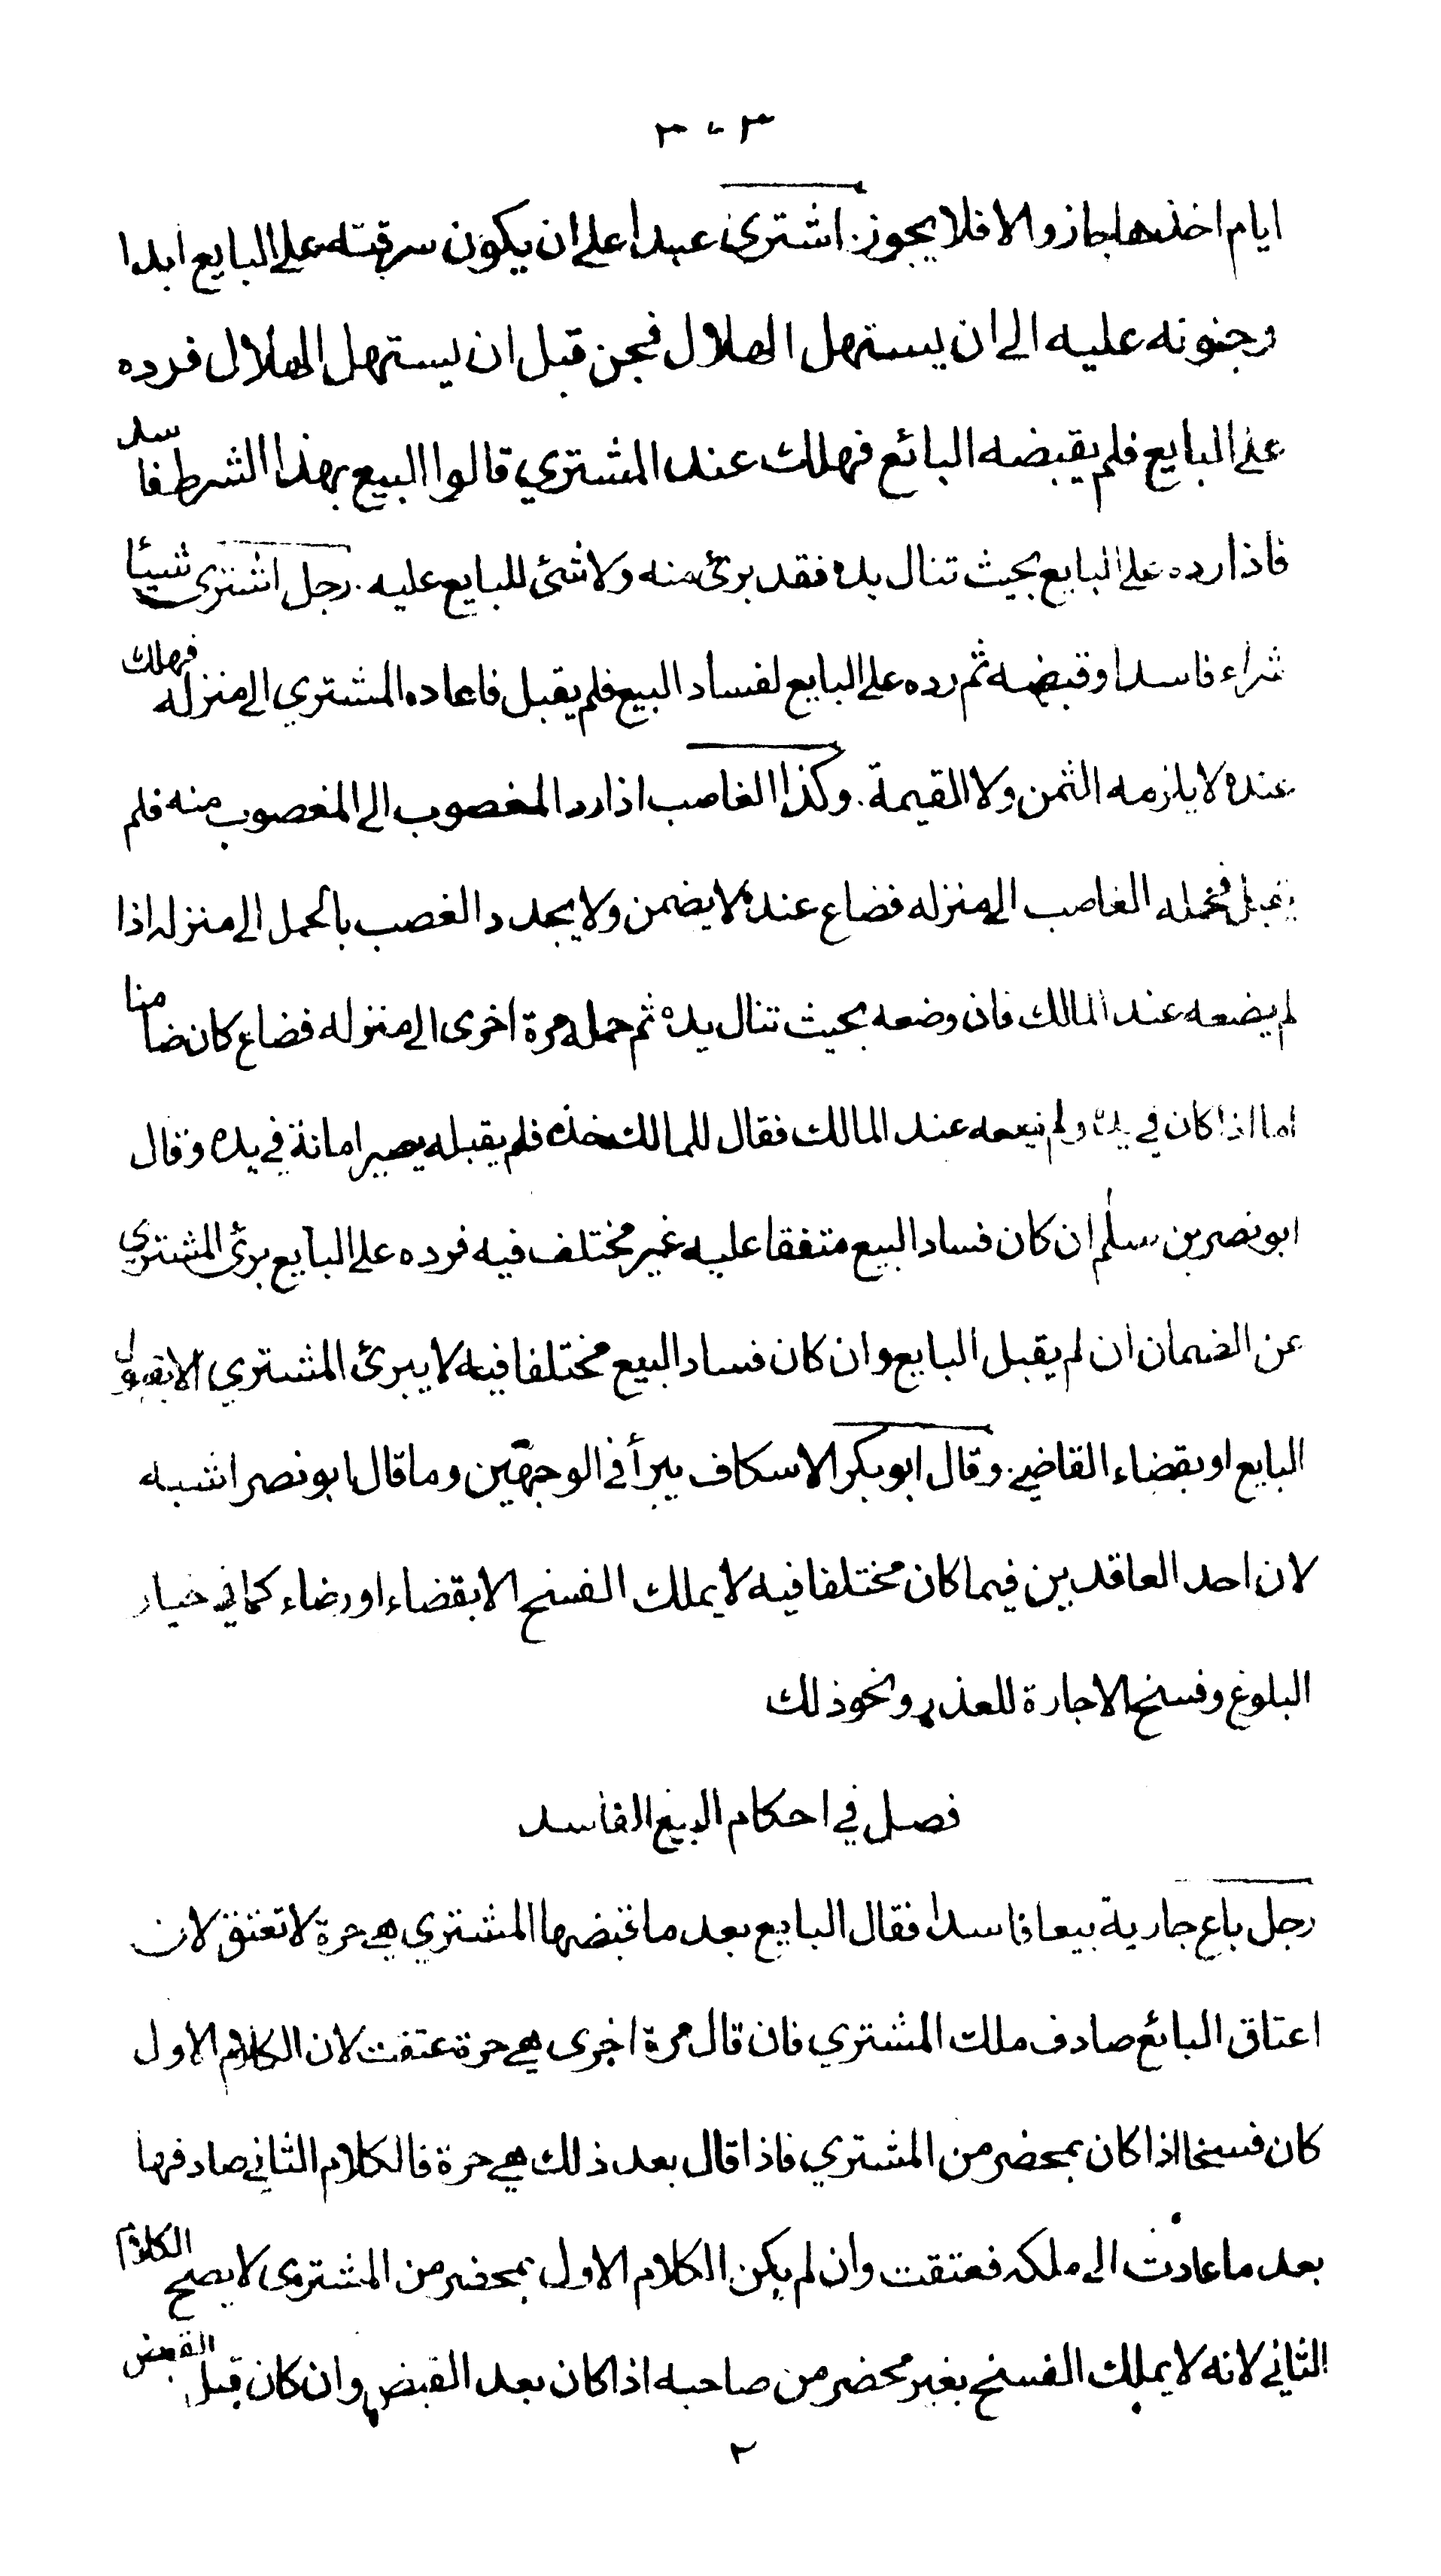 ٣٠٣
ايام اخذها جاز والا فلا يجوز. اشترى عبدا على ان يكون سرقته على البايع ابدا
وجنونه عليه الى ان يستهل الهلال فجن قبل ان يستهل الهلال فرده
على البايع فلم يقبضه البائع فهلك عند المشتري قالوا البيع بهذا الشرط فاسد
فاذا رده على البايع بحيث تنال يده فقد برئ منه ولا شئ للبايع عليه. رجل اشترى شيئا
شراء فاسدا وقبضه ثم رده على البايع لفساد البيع فلم يقبل فاعاده المشتري الى منزله فهلك
عنده لا يلزمه الثمن ولا القيمة. وكذا الغاصب اذا رد المغصوب الى المغصوب منه فلم
يقبل فحمله الغاصب الى منزله فضاع عنده لا يضمن ولا يجدد الغصب بالحمل الى منزله اذا
لم يضعه عند المالك فان وضعه بحيث تنال يده ثم حمله مرة اخرى الى منزله فضاع كان ضامنا
اما اذا كان في يده ولم يضعه عند المالك فقال للمالك خذه فلم يقبله يصير امانة في يده وقال
ابو نصر بن سلم ان كان فساد البيع متفقا عليه غير مختلف فيه فرده على البايع برئ المشتري
عن الضمان ان لم يقبل البايع وان كان فساد البيع مختلفا فيه لا يبرئ المشتري الا بقبول
البايع او بقضاء القاضي. وقال ابو بكر الاسكاف يبرأ في الوجهين وما قال ابو نصر اشبه
لان احد العاقدين فيما كان مختلفا فيه لا يملك الفسخ الا بقضاء او رضاء كما في خيار
البلوغ وفسخ الاجارة للعذر ونحو ذلك
فصل في احكام البيع الفاسد
رجل باع جارية بيعا فاسدا فقال البايع بعد ما قبضها المشتري هي حرة لا تعتق لان
اعتاق البائع صادف ملك المشتري فان قال مرة اخرى هي حرة عتقت لان الكلام الاول
كان فسخا اذا كان بمحضر من المشتري فاذا قال بعد ذلك هي حرة فالكلام الثاني صادفها
بعد ما عادت الى ملكه فعتقت وان لم يكن الكلام الاول بمحضر من المشترى لا يصح الكلام
الثاني لانه لا يملك الفسخ بغير محضر من صاحبه اذا كان بعد القبض وان كان قبل القبض
٢